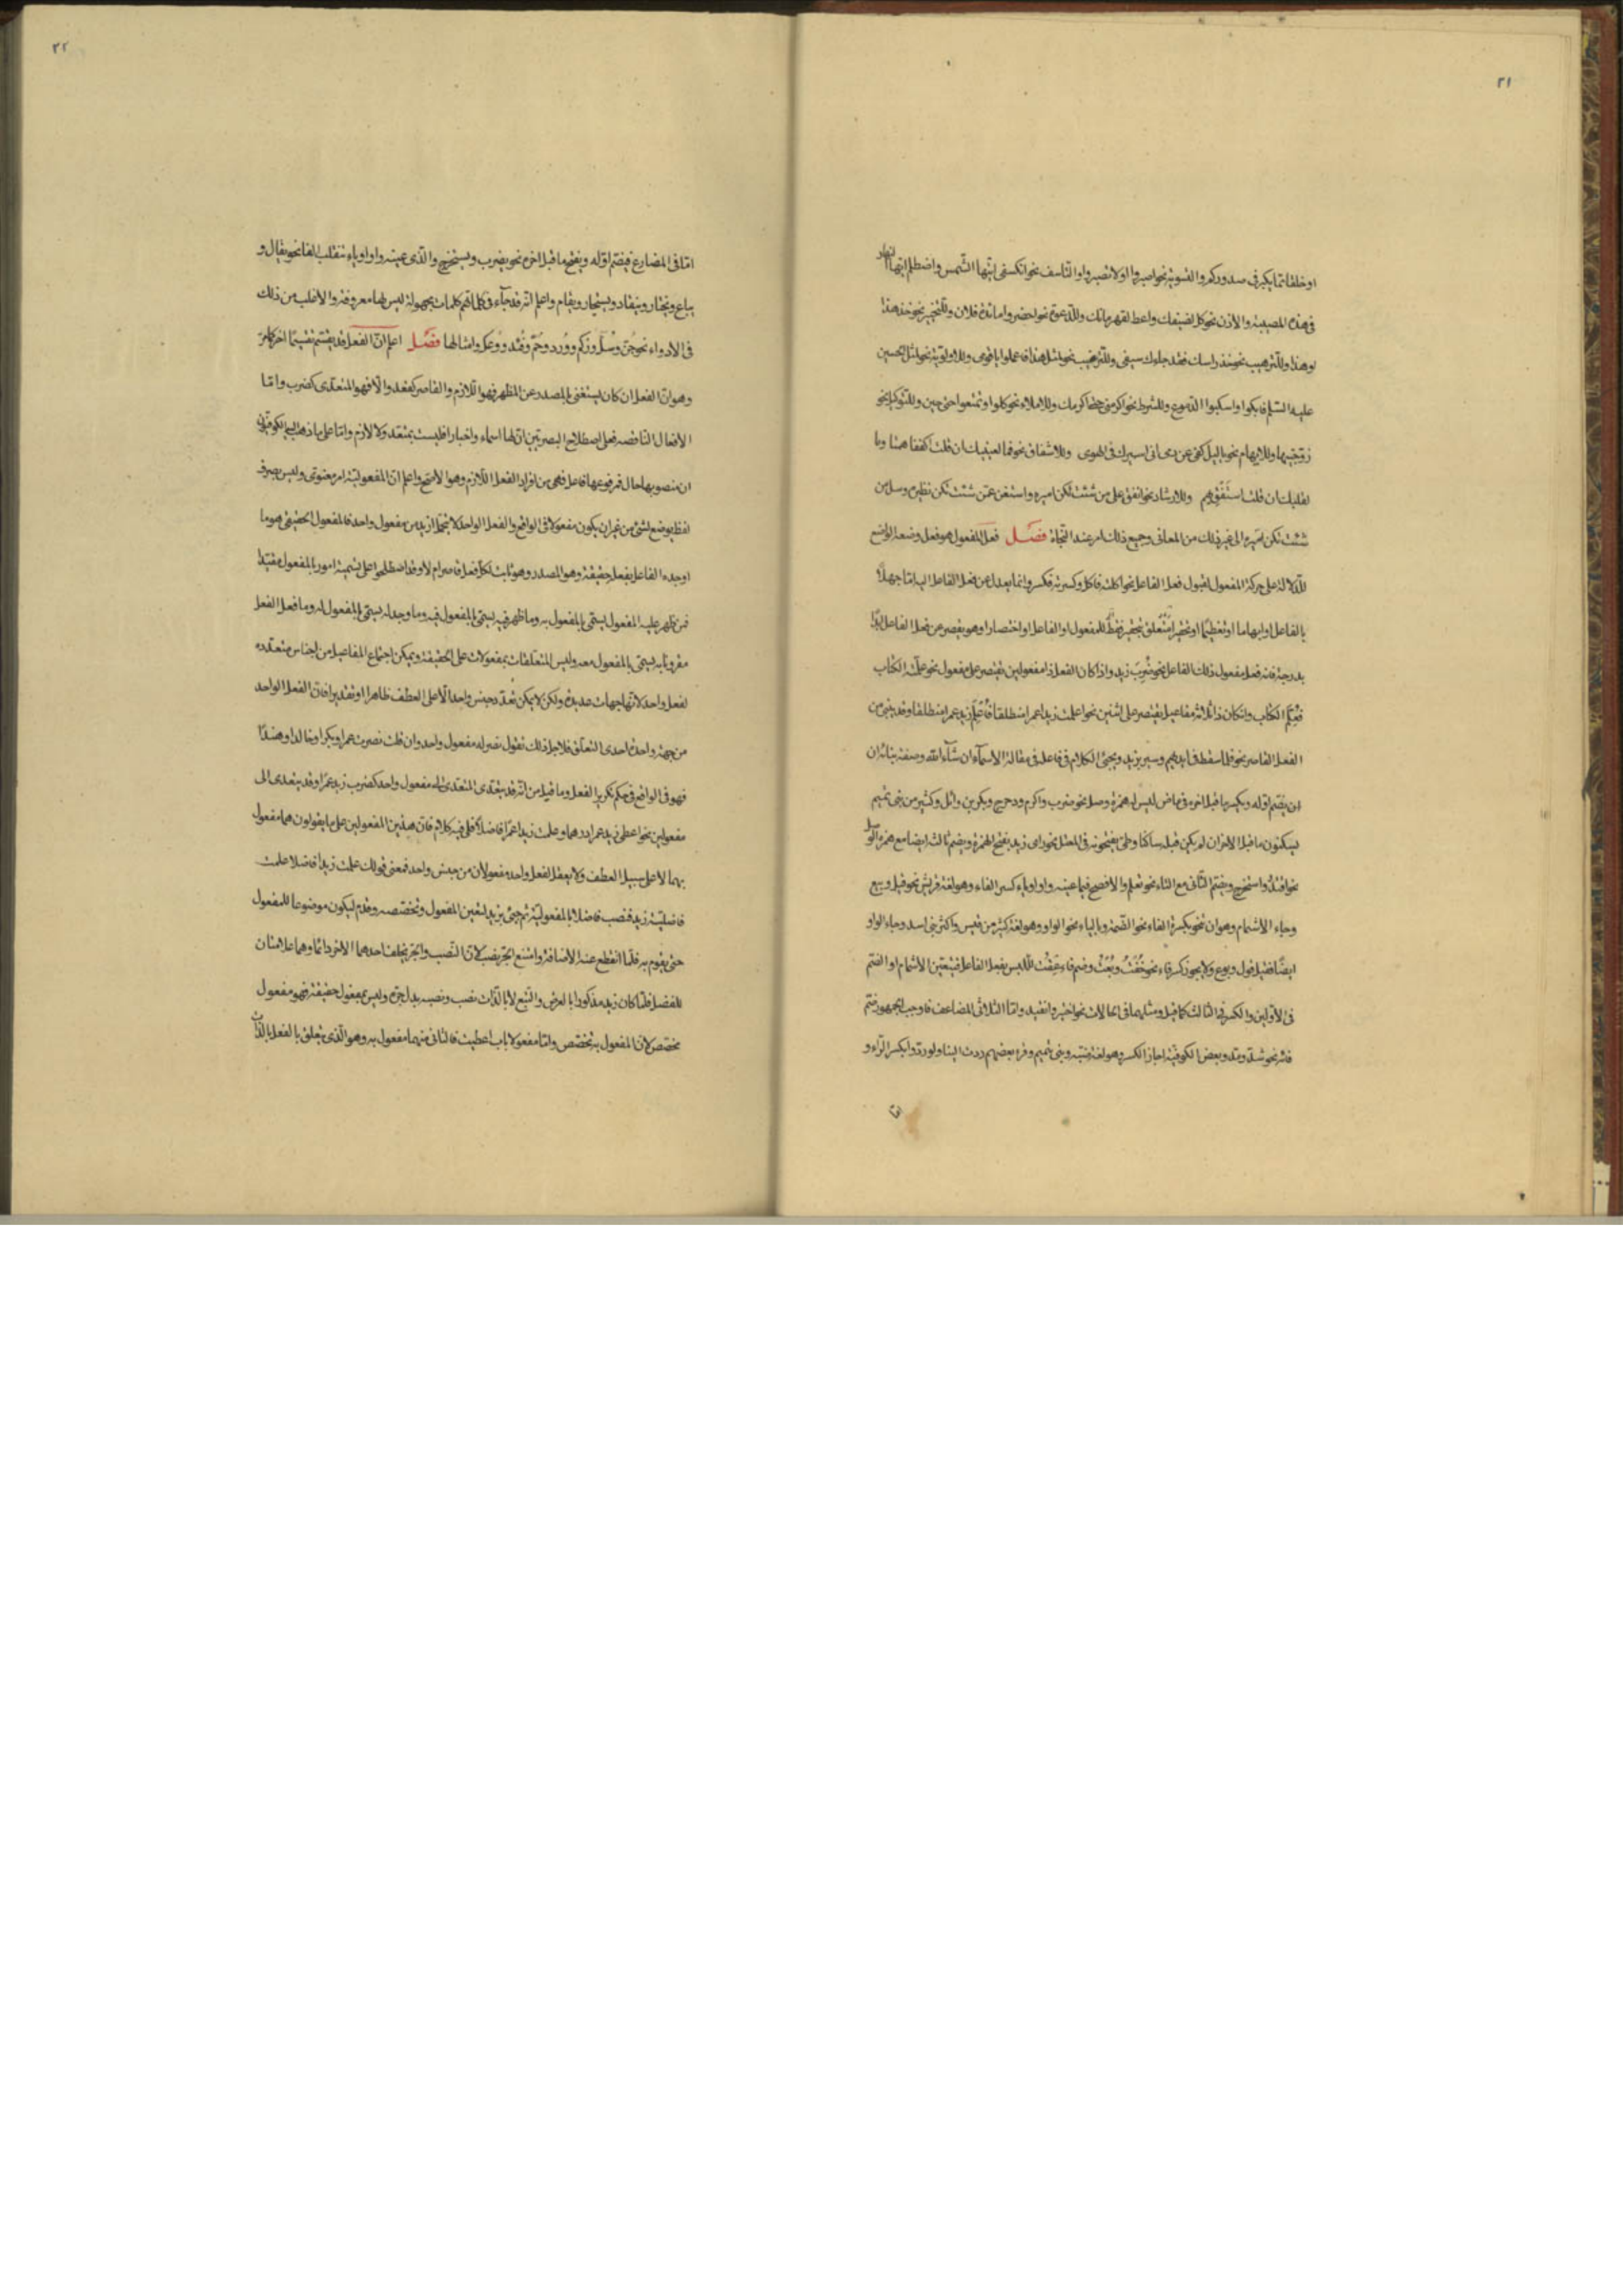 ٢١
او خلقا مما يكبر في صدوركم والتسوية نحو اصبروا او لا تصبروا والتأسف نحو انكسفي ايتها الشمس واضطلم ايها النهار
في هذه المصيبة والاذن نحو كل لضيفك واعط لقهرمانك وللدعوة نحو احضروا مائدة فلان وللتخيير نحو خذ هذا
او هذا وللترهيب نحو خذ راسك فقد جاءك سيفي وللترغيب نحو لمثل هذا فاعملوا يا قومي وللاولوية نحو لمثل الحسين
عليه السلم فابكوا واسكبوا الدموع وللشرط نحو اكرمني حتى اكرمك وللاملاء نحو كلوا وتمتعوا حتى حين وللتوكيل نحو
زوجنيها وللايهام نحو يا ليل كفي عن دمي اني اسيرك في الهوى وللاشفاق نحو فما لعينيك ان قلت اكففا همتا وما
لقلبك ان قلت استفق يهم وللارشاد نحو انفق على من شئت تكن اميره واستغن عمن شئت تكن نظيره وسل من
شئت تكن اسيره الى غير ذلك من المعاني وجميع ذلك امر عند النحاة فصل فعل المفعول هو فعل وضعه الواضع
للدلالة على حركة المفعول لقبول فعل الفاعل نحو اكلته فاكل وكسرته فكسر وانما يعدل عن فعل الفاعل اليه اما جهلا
بالفاعل او ابهاما او تعظيما او تحقيرا للمفعول او الفاعل او اختصارا وهو يقصر عن فعل الفاعل ابدا
بدرجة فانه فعل مفعول ذلك الفاعل نحو ضرب زيد واذا كان الفعل ذا مفعولين يقتصر على مفعول نحو علمته الكتاب
فعلم الكتاب وان كان ذا ثلاثة مفاعيل يقتصر على اثنين نحو اعلمت زيدا عمرا منطلقا فاعلم زيد عمرا منطلقا وقد يبنى من
الفعل القاصر نحو فلما سقط في ايديهم وسير بزيد ويجئ الكلام في فاعله في مقالة الاسماء ان شاء الله وصفة بنائه ان
ان يضم اوله ويكسر ما قبل اخره في ماض ليس له همزة وصل نحو ضرب واكرم ودحرج وبكر بن وائل وكثير من بني تميم
يسكنون ما قبل الاخر ان لم يكن قبله ساكنا وطئ يفتحونه في المعتل نحو راى زيد بفتح الهمزة ويضم ثالثه ايضا مع همزة الوصل
نحو اقتدر واستخرج ويضم الثاني مع التاء نحو تعلم والافصح فيما عينه واو او ياء كسر الفاء وهو لغة قريش نحو قيل وبيع
وجاء الاشمام وهو ان تنحو بكسرة الفاء نحو الضمة وبالياء نحو الواو وهو لغة كثير من قيس واكثر بني اسد وجاء الواو
ايضا فقيل قول وبوع ولا يجوز كسر فاء نحو خفت وبعت وضم فاء عقت للبس بفعل الفاعل فيتعين الاشمام او الضم
في الاولين والكسر في الثالث كما قيل ومثلهما في الحالات نحو اختير وانقيد واما الثلاثي المضاعف فاوجب الجمهور ضم
فائه نحو شد ومد وبعض الكوفية اجاز الكسر وهو لغة ضبة وبني تميم وقرء بعضهم ردت الينا ولو ردوا بكسر الراء و
اما
٢٢
اما في المضارع فيضم اوله ويفتح ما قبل اخره نحو يضرب ويستخرج والذي عينه واو او ياء تنقلب الفا نحو يقال و
يباع ويختار وينقاد ويستجار ويقام واعلم انه قد جاء في كلماتهم كلمات مجهولة ليس لها معروفة والاغلب من ذلك
في الادواء نحو جن وسل وزكم وورد وحم وفئد ووعك وامثالها فصل اعلم ان الفعل قد يقسم تقسيما اخر كما مر
وهو ان الفعل ان كان يستغني بالمصدر عن المظهر فهو اللازم والقاصر كقعد والا فهو المتعدي كضرب واما
الافعال الناقصة فعلى اصطلاح البصريين ان لها اسماء واخبارا فليست بمتعد ولا لازم واما على ما ذهب اليه الكوفيون
ان منصوبها حال فمرفوعها فاعل فهي من افراد الفعل اللازم وهو الاصح واعلم ان المفعولية امر معنوي وليس بصرف
لفظ يوضع لشئ من غير ان يكون مفعولا في الواقع والفعل الواحد لا يتحمل ازيد من مفعول واحد فالمفعول الحقيقي هو ما
اوجده الفاعل بفعله حقيقة وهو المصدر وهو ثابت لكل فعل قاصر ام لا وقد اصطلحوا على تسمية امور بالمفعول مقيدا
فمن ظهر عليه المفعول يسمى بالمفعول به وما ظهر فيه يسمى بالمفعول فيه وما وجد له يسمى بالمفعول له وما فعل الفعل
مقرونا به يسمى بالمفعول معه وليس المتعلقات بمفعولات على الحقيقة ويمكن اجتماع المفاعيل من اجناس متعددة
لفعل واحد لانها جهات عديدة ولكن لا يمكن تعدد جنس واحد الا على العطف ظاهرا او تقديرا فان الفعل الواحد
من جهة واحدة احدي التعلق فلاجل ذلك تقول نصر له مفعول واحد وان قلت نصرت عمرا وبكرا وخالدا وهندا
فهو في الواقع في حكم تكرير الفعل وما قيل من انه قد يتعدى المتعدي الى مفعول واحد كضرب زيد عمرا وقد يتعدى الى
مفعولين نحو اعطى زيد عمرا درهما وعلمت زيدا عمرا فاضلا فلي فيه كلام فان هذين المفعولين على ما يقولون هما مفعول
بهما لا على سبيل العطف ولا يعقل لفعل واحد مفعولان من جنس واحد فمعنى قولك علمت زيدا فاضلا علمت
فاضلية زيد فنصب فاضلا بالمفعولية ثم جئ بزيد لتعين المفعول وتخصصه وقدم ليكون موضوعا للمفعول
حتى يقوم به فلما انقطع عنه الاضافة وامتنع الجر نصب لان النصب والجر يخلف احدهما الاخر دائما وهما علامتان
للفضل فلما كان زيد مذكورا بالعرض والتبع لا بالذات نصب ونصبه بدل جره وليس بمفعول حقيقة فهو مفعول
مخصص لان المفعول به تخصص واما مفعولا باب اعطيت فالثاني منهما مفعول به وهو الذي يتعلق بالفعل بالذات